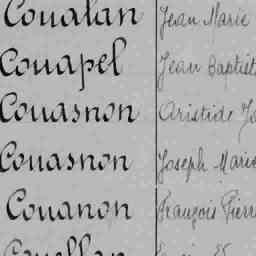 Coualan Jean Marie
Couapel Jean Baptist
Couasnon Aristide
Couasnon Joseph Marie
Couanon François Pierr
Couellan